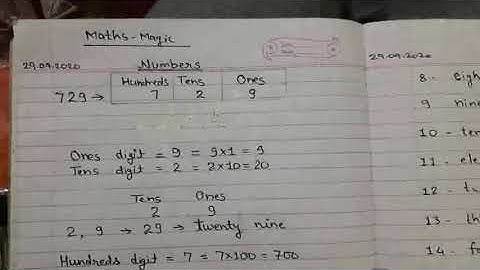 Maths - Magic
29.09.2020
Numbers
Hundreds Tens Ones
729 → 7 2 9
Ones digit = 9 = 9x1 = 9
Tens digit = 2 = 2x10 = 20
Tens Ones
2 9
2, 9 → 29 → twenty nine
Hundreds dgit = 7 = 7x100 = 700
29.09.2020
8 - eigh
9 nine
10 - ten
11 - ele
12 - tw
13 - th
14 - fo